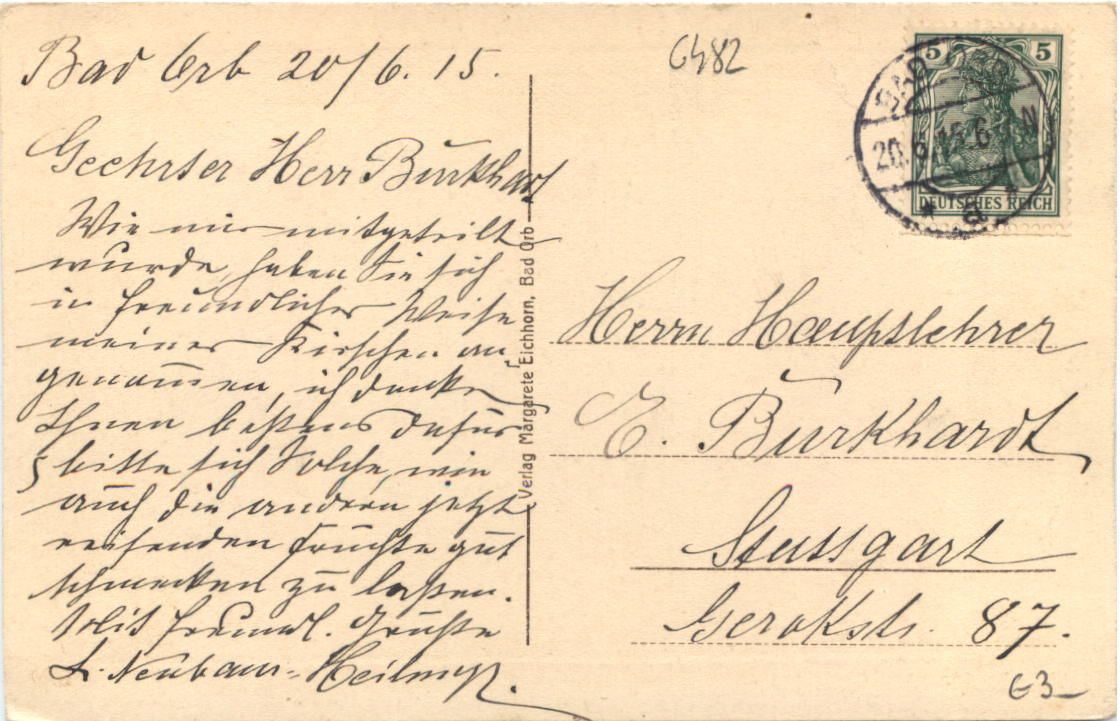 Bad Orb 20/6. 15.
G482
5 5
BAD ORB
20.6.15.6-7N
* a *
DEUTSCHES REICH
Geehrter Herr Burkhardt
Wie mir mitgeteilt
wurde, haben Sie sich
in freundlicher Weise
meiner Kirschen an,
genommen, ich danke
Ihnen bestens dafür
bitte sich Solche, wie
auch die andern jetzt
reifenden Früchte gut
schmecken zu lassen.
Mit freundl. Grüße
L. Neubaur-
Verlag Margarete Eichhorn, Bad Orb
Herrn Hauptlehrer
E. Burkhardt
Stuttgart
Gerokstr. 87.
G3